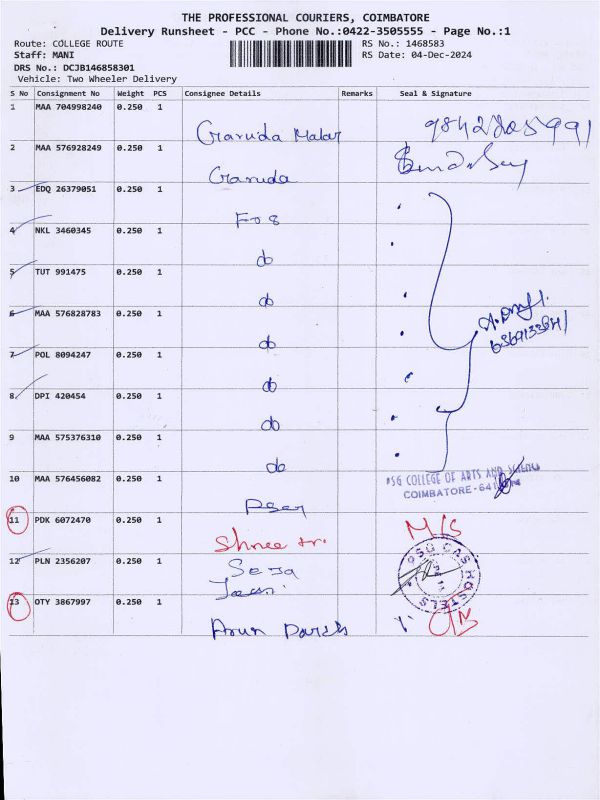 THE PROFESSIONAL COURIERS, COIMBATORE
Delivery Runsheet - PCC - Phone No.:0422-3505555 - Page No.:1
Route: COLLEGE ROUTE RS No.: 1468583
Staff: MANI RS Date: 04-Dec-2024
DRS No.: DCJB146858301
Vehicle: Two Wheeler Delivery
S No Consignment No Weight PCS Consignee Details Remarks Seal & Signature
1 MAA 704998240 0.250 1
Garuda Malar
2 MAA 576928249 0.250 1
Garuda
3 EDQ 26379051 0.250 1
4 NKL 3460345 0.250 1
do
5 TUT 991475 0.250 1
do
6 MAA 576828783 0.250 1
do
7 POL 8094247 0.250 1
do
8 DPI 420454 0.250 1
do
9 MAA 575376310 0.250 1
do
PSG COLLEGE OF ARTS AND SCIENCE
10 MAA 576456082 0.250 1
COIMBATORE-641
11 PDK 6072470 0.250 1
M/S
Shree
12 PLN 2356207 0.250 1
PSG CAS HOSTELS
13 OTY 3867997 0.250 1
Arun